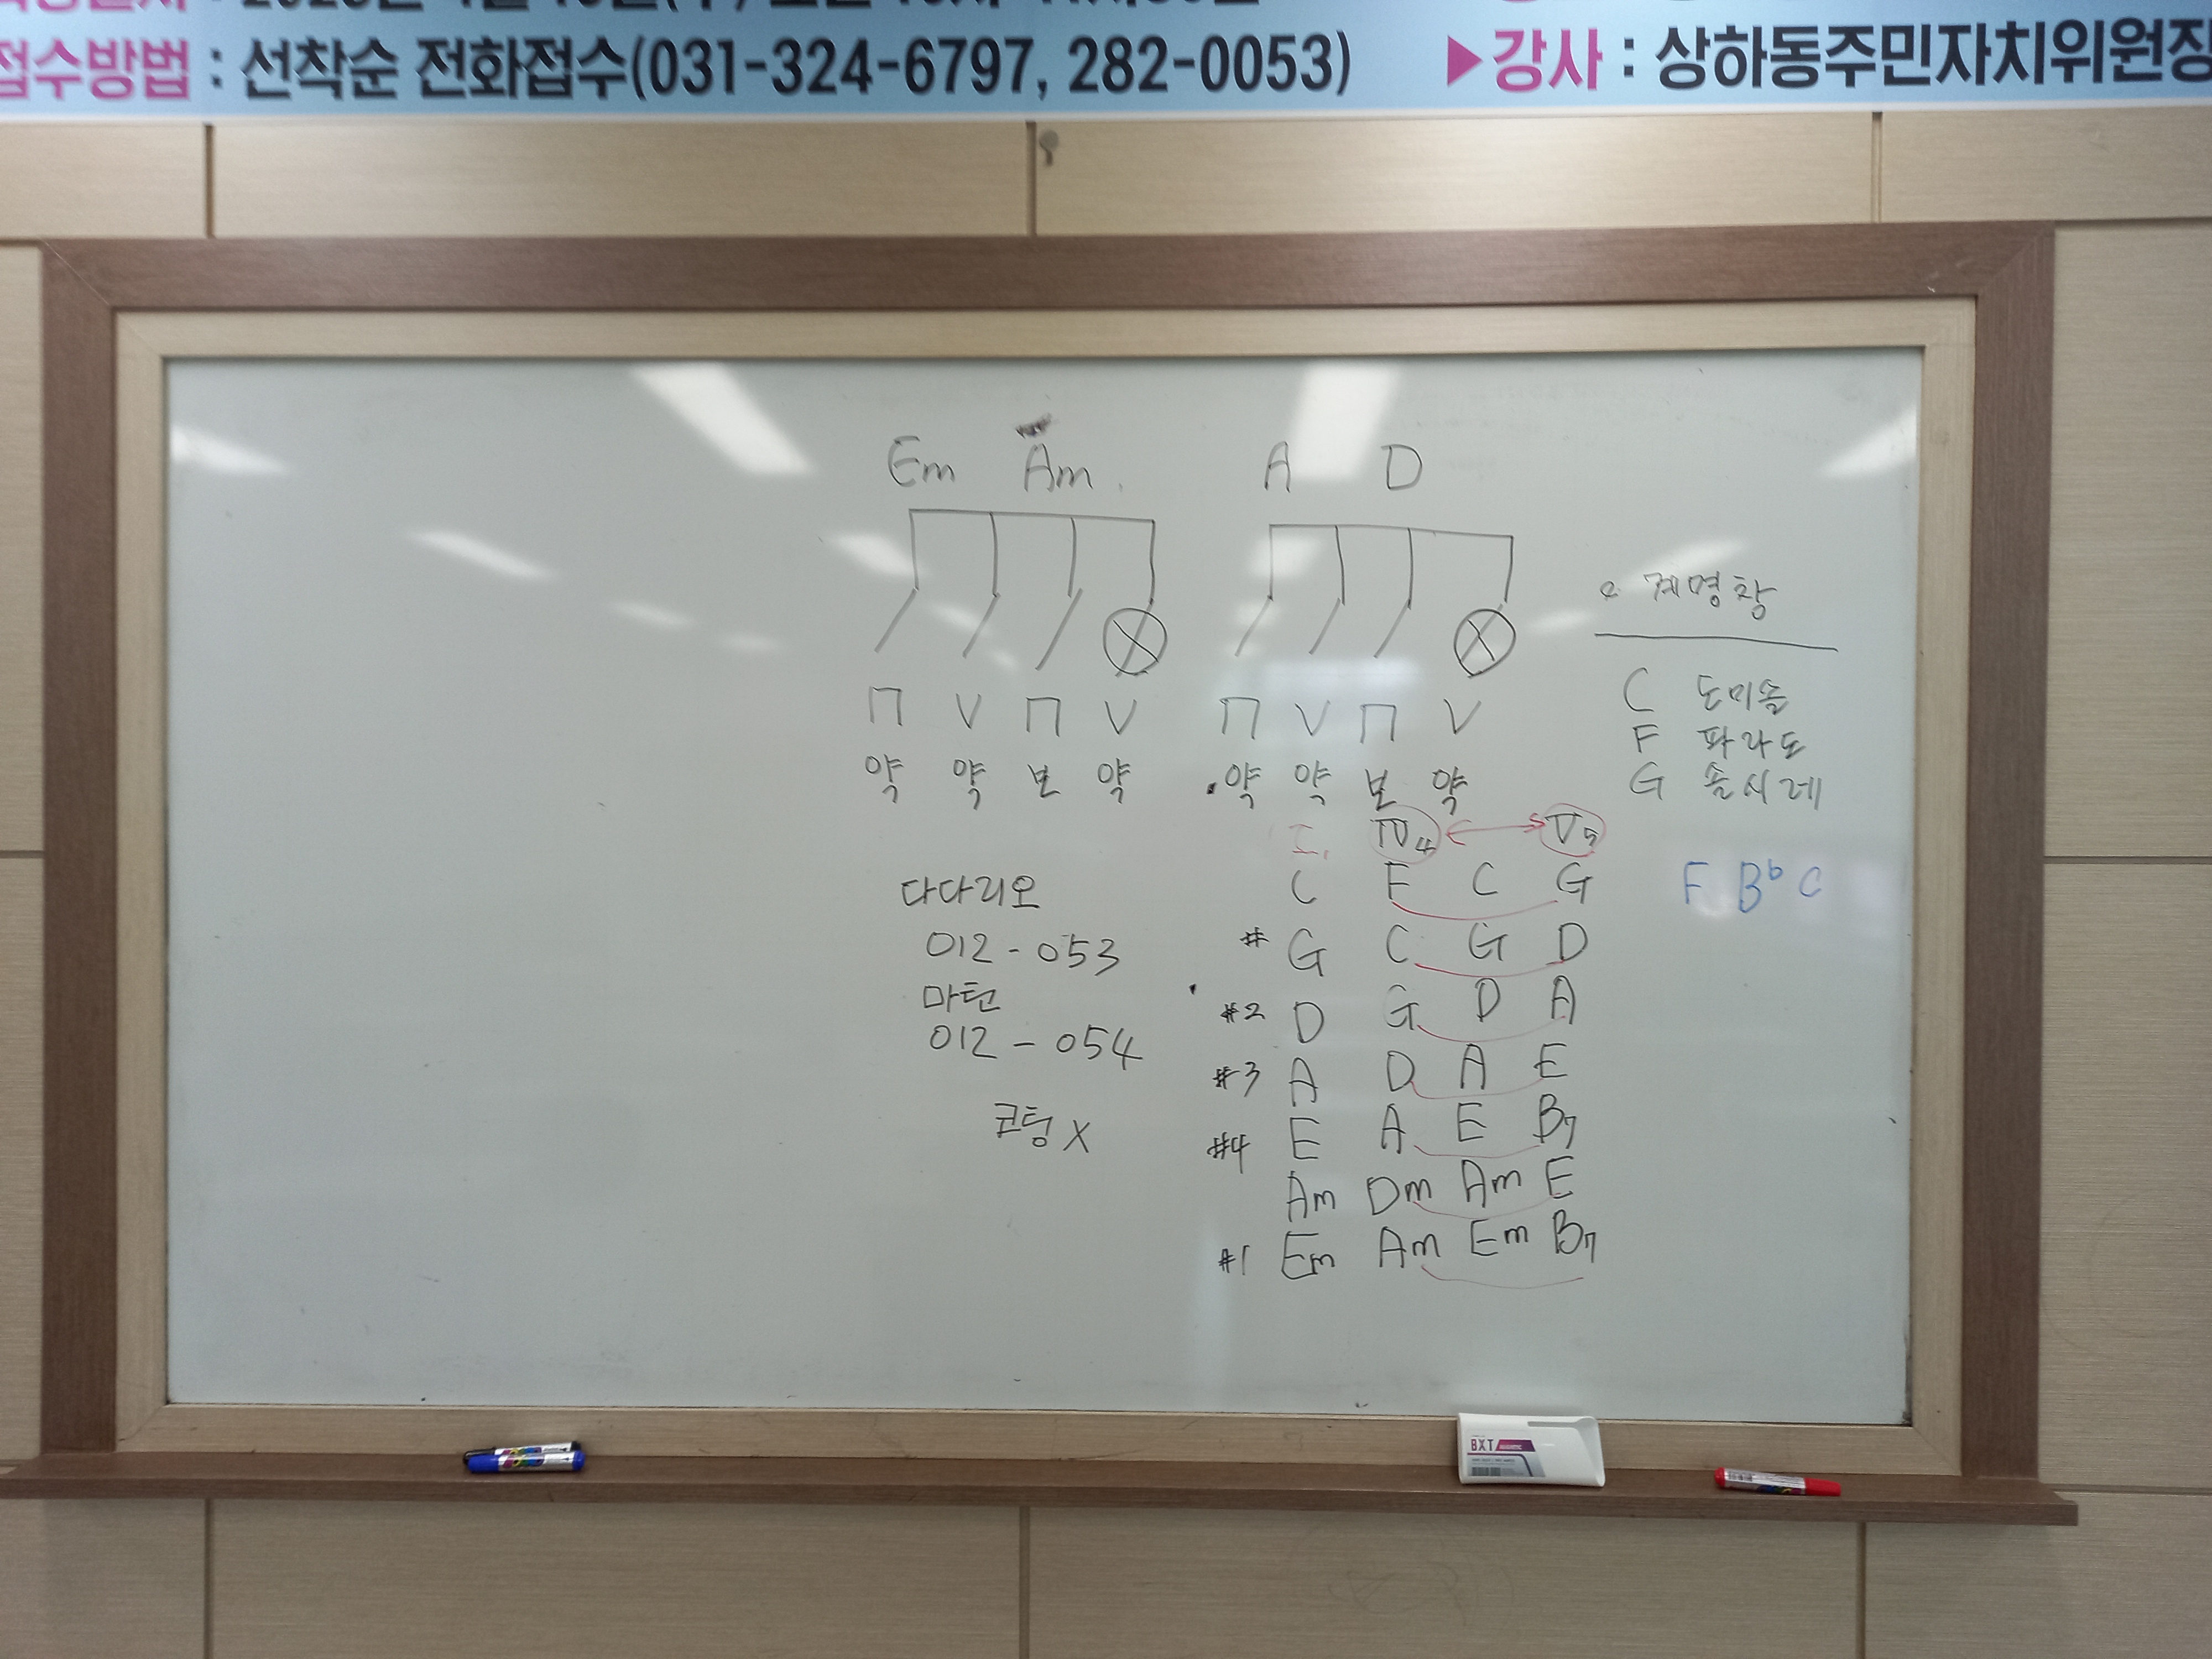 접수방법 : 선착순 전화접수(031-324-6797, 282-0053) ▶강사 : 상하동주민자치위원장
Em Am A D
약 약 보 약 약 약 보 약
계명창
C 도미솔
F 파라도
G 솔시레
I₁ Ⅳ₄ Ⅴ₅
C F C G
F B♭ C
# G C G D
#2 D G D A
#3 A D A E
#4 E A E B7
Am Dm Am E
#1 Em Am Em B7
다다리오
012 - 053
마틴
012 - 054
코팅 X
BXT